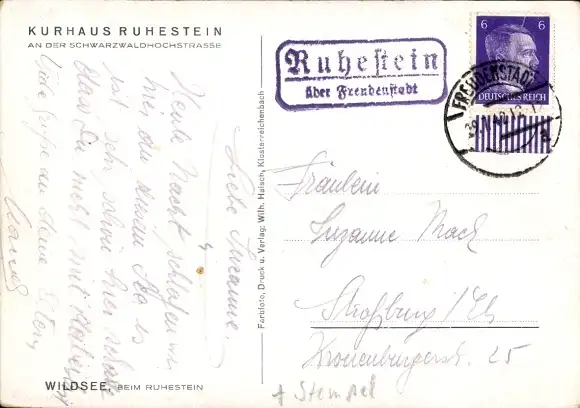 KURHAUS RUHESTEIN
AN DER SCHWARZWALDHOCHSTRASSE
Liebe Suzanne.
Heute Nacht schlafen wir
hier an diesem See. Es
ist sehr schön hier schade
dass Du nicht mit
Liebe Grüße an deine Eltern
WILDSEE, BEIM RUHESTEIN
Farbfoto, Druck u. Verlag: Wilh. Haisch, Klosterreichenbach
Ruhestein
über Freudenstadt
6 6
DEUTSCHES REICH
FREUDENSTADT
a
Fräulein
Suzanne Mack
Straßburg i/Els
Kronenburgerstr. 25
+ Stempel